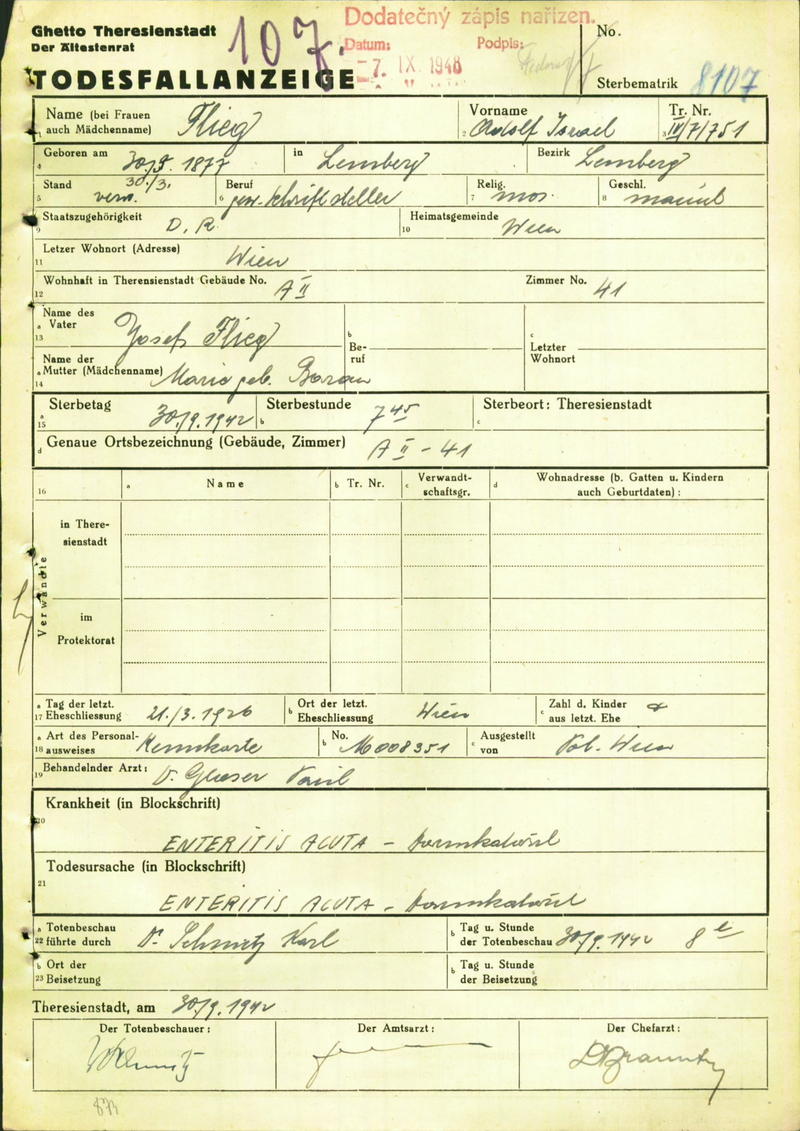 Ghetto Theresienstadt
Der Ältestenrat
107.
Dodatečný zápis nařízen.
Datum:
Podpis:
-7. IX. 1948
No.
TODESFALLANZEIGE
Sterbematrik 8107
Name (bei Frauen
auch Mädchenname) Flieg
Vorname
2 Adolf Israel
Tr. Nr.
3 IV/7/751
Geboren am
4 30./3. 1877
30./3.
in Lemberg
Bezirk Lemberg
Stand
5 verw.
Beruf
6 gew. Schriftsteller
Relig.
7 mos.
Geschl.
8 männl
Staatszugehörigkeit
9 D. R.
Heimatsgemeinde
10 Wien
Letzer Wohnort (Adresse)
11 Wien
Wohnhaft in Therensienstadt Gebäude No.
12 A II
Zimmer No. 41
Name des
a Vater
13 Josef Flieg
b
Be-
ruf
c
Letzter
Wohnort
Name der
a Mutter (Mädchenname)
14 Marie geb.
a Sterbetag
15 30./9. 1942
Sterbestunde
b 7 45
Sterbeort: Theresienstadt
c
d Genaue Ortsbezeichnung (Gebäude, Zimmer) A II - 41
16
a Name
b Tr. Nr.
c Verwandt-
schaftsgr.
d Wohnadresse (b. Gatten u. Kindern
auch Geburtdaten) :
Verwandte
in There-
sienstadt
im
Protektorat
a Tag der letzt.
17 Eheschliessung 21./3. 1926
b Ort der letzt.
Eheschliessung Wien
c Zahl d. Kinder
aus letzt. Ehe
a Art des Personal-
18 ausweises Kennkarte
b No. M008351
c Ausgestellt
von Pol. Wien
19 Behandelnder Arzt: Dr.
Krankheit (in Blockschrift)
20
ENTERITIS ACUTA - Darmkatarrh
Todesursache (in Blockschrift)
21
ENTERITIS ACUTA - Darmkatarrh
a Totenbeschau
22 führte durch Dr. Karl
b Tag u. Stunde
der Totenbeschau 30/9. 1942 8
b Ort der
23 Beisetzung
b Tag u. Stunde
der Beisetzung
Theresienstadt, am 30/9. 1942
Der Totenbeschauer:
Der Amtsarzt:
Der Chefarzt: